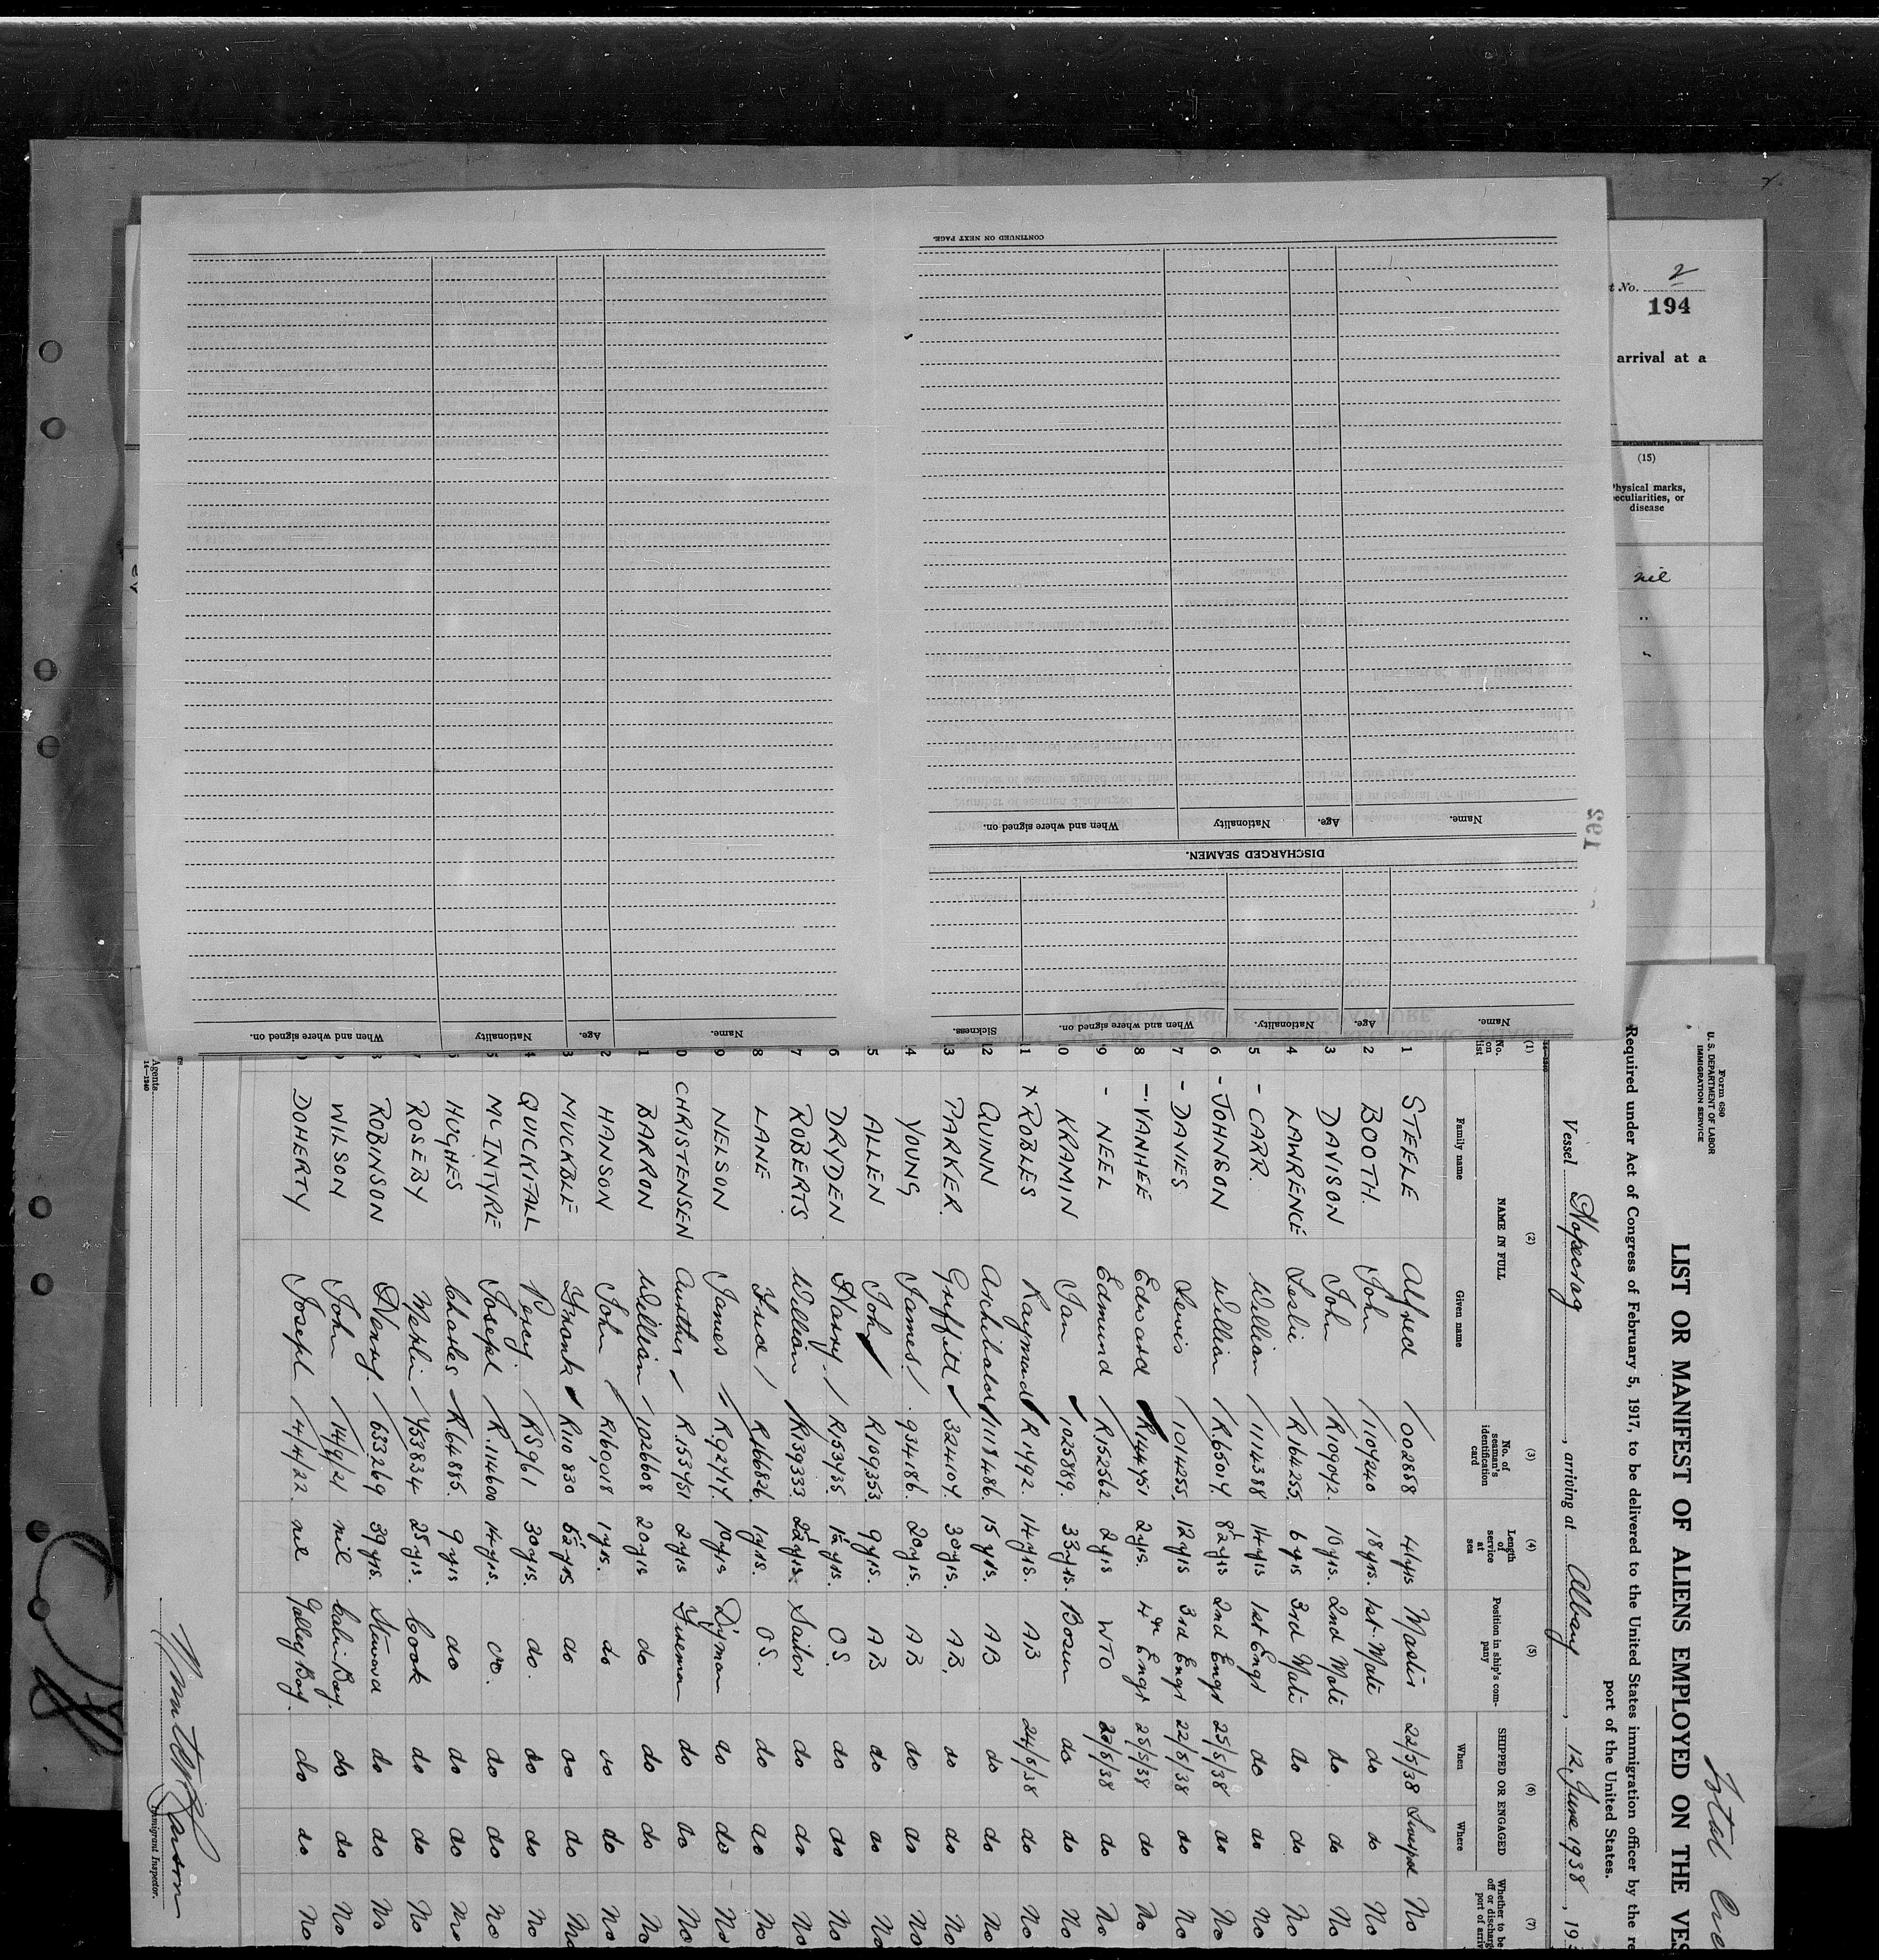 t No. 2
194
arrival at a
(15)
Physical marks, peculiarities, or disease
nil
CONTINUED ON NEXT PAGE.
Name. Age. Nationality When and where signed on.
DISCHARGED SEAMEN.
Name. Age. Nationality. When and where signed on. Sickness.
Name. Age. Nationality When and where signed on.
192
Form 680
U. S. DEPARTMENT OF LABOR
IMMIGRATION SERVICE
Total Cre
LIST OR MANIFEST OF ALIENS EMPLOYED ON THE VES
Required under Act of Congress of February 5, 1917, to be delivered to the United States immigration officer by the re
port of the United States.
Vessel Hopecrag, arriving at Albany, 12. June 1938, 193
(1) (2) (3) (4) (5) (6) (7)
No. on list NAME IN FULL Family name Given name No. of seaman's identification card Length of service at sea Position in ship's company SHIPPED OR ENGAGED When Where Whether to be off or discharg port of arriv
1 STEELE Alfred 002858 44 yrs Master 22/5/38 Liverpol No
2 BOOTH. John 1107240 18 yrs. 1st Mate do do No
3 DAVISON John R109072 10 yrs. 2nd Mate do. do No
4 LAWRENCE Leslie R164255 6 yrs 3rd Mate do do No
5 - CARR. William 1114388 14 yrs 1st Engr do do No
6 - JOHNSON William R.65017. 8½ yrs 2nd Engr 25/5/38 do No
7 - DAVIES Lewis 1014255 12 yrs 3rd Engr 22/5/38 do No
8 - VANHEE Edward R144751 2 yrs. 4th Engr 25/5/38 do No
9 - NEEL Edmund R152562. 2 yrs WTO 22/5/38 do No
10 KRAMIN Jan 1025889. 33 yrs. Bosun do do No
11 X ROBLES Raymond R1792. 14 yrs. AB 24/5/38 do No
12 QUINN Archibald 1118486. 15 yrs. AB do do No
13 PARKER. Griffith 324107 30 yrs. AB. do do No
14 YOUNG James 934186. 20 yrs. AB do do No
15 ALLEN John R109353 9 yrs. AB do do No
16 DRYDEN Harry R153735. 1½ yrs. OS. do do No
17 ROBERTS William R139333 2½ yrs. Sailor do do No
18 LANE R166826. 1 yrs. OS. do do No
19 NELSON James R.92717. 10 yrs D'yman do do No
20 CHRISTENSEN Arthur R.153751 2 yrs Fireman do do No
21 BARRON William 1026608 20 yrs do do do No
22 HANSON John R160,018 1 yrs. do do do No
23 MUCKBLE Frank R110830 5½ yrs do do do No
24 QUICKFALL Percy R5961 30 yrs. do. do do No
25 MC INTYRE Joseph R.114600 14 yrs. do. do do No
26 HUGHES Charles R.64885. 9 yrs do do do No
27 ROSEBY 453834 25 yrs. Cook do do No
28 ROBINSON Henry. 633269 39 yrs. Steward do do No
29 WILSON John 14/9/21 nil Cabin Boy. do do No
30 DOHERTY Joseph 4/4/22. nil Galley Boy. do do No
Agents
14—1240
Immigrant Inspector.